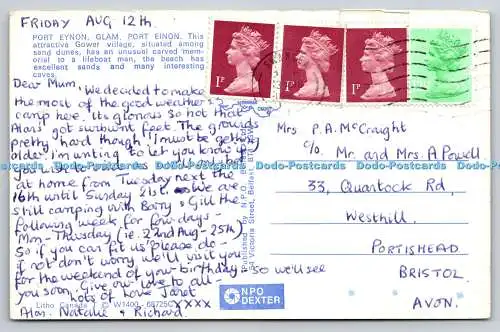 FRIDAY AUG 12th.
PORT EYNON, GLAM. PORT EINON. This
attractive Gower village, situated among
sand dunes, has an unusual carved mem-
orial to a lifeboat man, the beach has
excellent sands and many interesting
caves.
Dear Mum, We decided to make
the most of the good weather &
camp here. Its glorious so hot that
Alan's got sunburnt feet. The ground's
pretty hard though I must be getting
older. I'm writing to let you know if
at home from Tuesday next the
16th until Sunday 21st. We are
still camping with Barry & Gill the
following week for few days -
Mon - Thursday (ie. 22nd Aug - 25th)
So if you can fit us in please do -
if not don't worry we'll visit you
for the weekend of your birthday, so we'll see
you soon. Give our love to all -
Lots of Love Janet
Alan, Natalie & Richard. xxxx
Litho Canada © W1400 - 66725C
Published by N.P.O. Belfast Ltd.
Victoria Street, Belfast
NPO
DEXTER
1P
1P
1P
Mrs P.A. McCraight
c/o, Mr. and Mrs. A Powell
33, Quantock Rd,
Westhill
PORTISHEAD
BRISTOL
AVON.
Dodo-Postcards Dodo-Postcards Dodo-Postcards Dodo-Postcards Dodo-Postcards